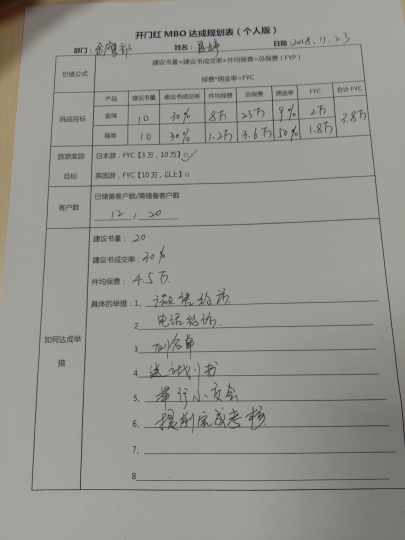 开门红 MBO 达成规划表（个人版）
部门： 姓名： 日期 2018.11.23
价值公式
建议书量*建议书成交率*件均保费=总保费（FYP）
保费*佣金率=FYC
挑战目标
产品 建议书量 建议书成交率 件均保费 总保费 佣金率 FYC 合计 FYC
金瑞 10 30% 8万 25万 9% 2万 3.8万
福类 10 30% 1.2万 3.6万 50% 1.8万
旅游奖励目标
日本游，FYC【3 万，10 万】□✓
英国游，FYC【10 万，以上】□
客户数
已储备客户数/需储备客户数
12 , 20
如何达成举措
建议书量： 20
建议书成交率：30%
件均保费： 4.5万
具体的举措：1、 邀请约访
2 电话约访
3 列名单
4 送计划书
5、 举行小交会
6、 提前完成考核
7、
8